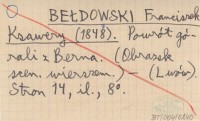 BEŁDOWSKI Franciszek
Ksawery (1848). Powrót gó-
rali z Berna. (Obrazek
scen. wierszem.) - (Lwów).
Stron 14, il., 8º.